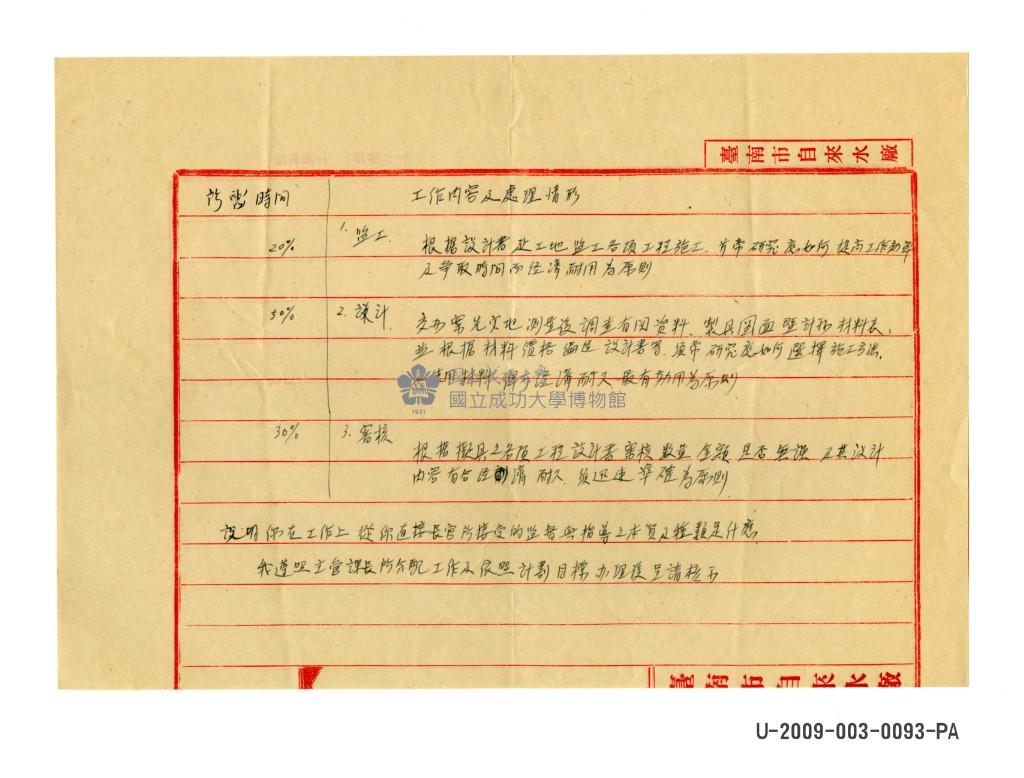 臺南市自來水廠
所習時間 工作內容及處理情形
20% 1. 监工 根据設計書赴工地监工各項工程施工，并常研究應如何提高工作効率
及爭取時間而经濟耐用為原則
50% 2. 設計 交办案先实地測量後調查有関资料，製具圖面暨計秿材料表，
並根据材料價格編造設計書等，須常研究應如何選擇施工方法，
使用材料 濟耐久最有効用為原則
國立成功大學博物館
1931
30% 3. 審核 根据擬具之各項工程設計書審核数量金額是否無誤及其設計
內容有合经濟耐久，須迅速準確為原則
説明你在工作上從你直接長官所接受的监督與指導之本質及種類是什麽
我遵照主管課長所分配工作及依照計劃目標办理後呈請核示
臺南市自來水廠
U-2009-003-0093-PA